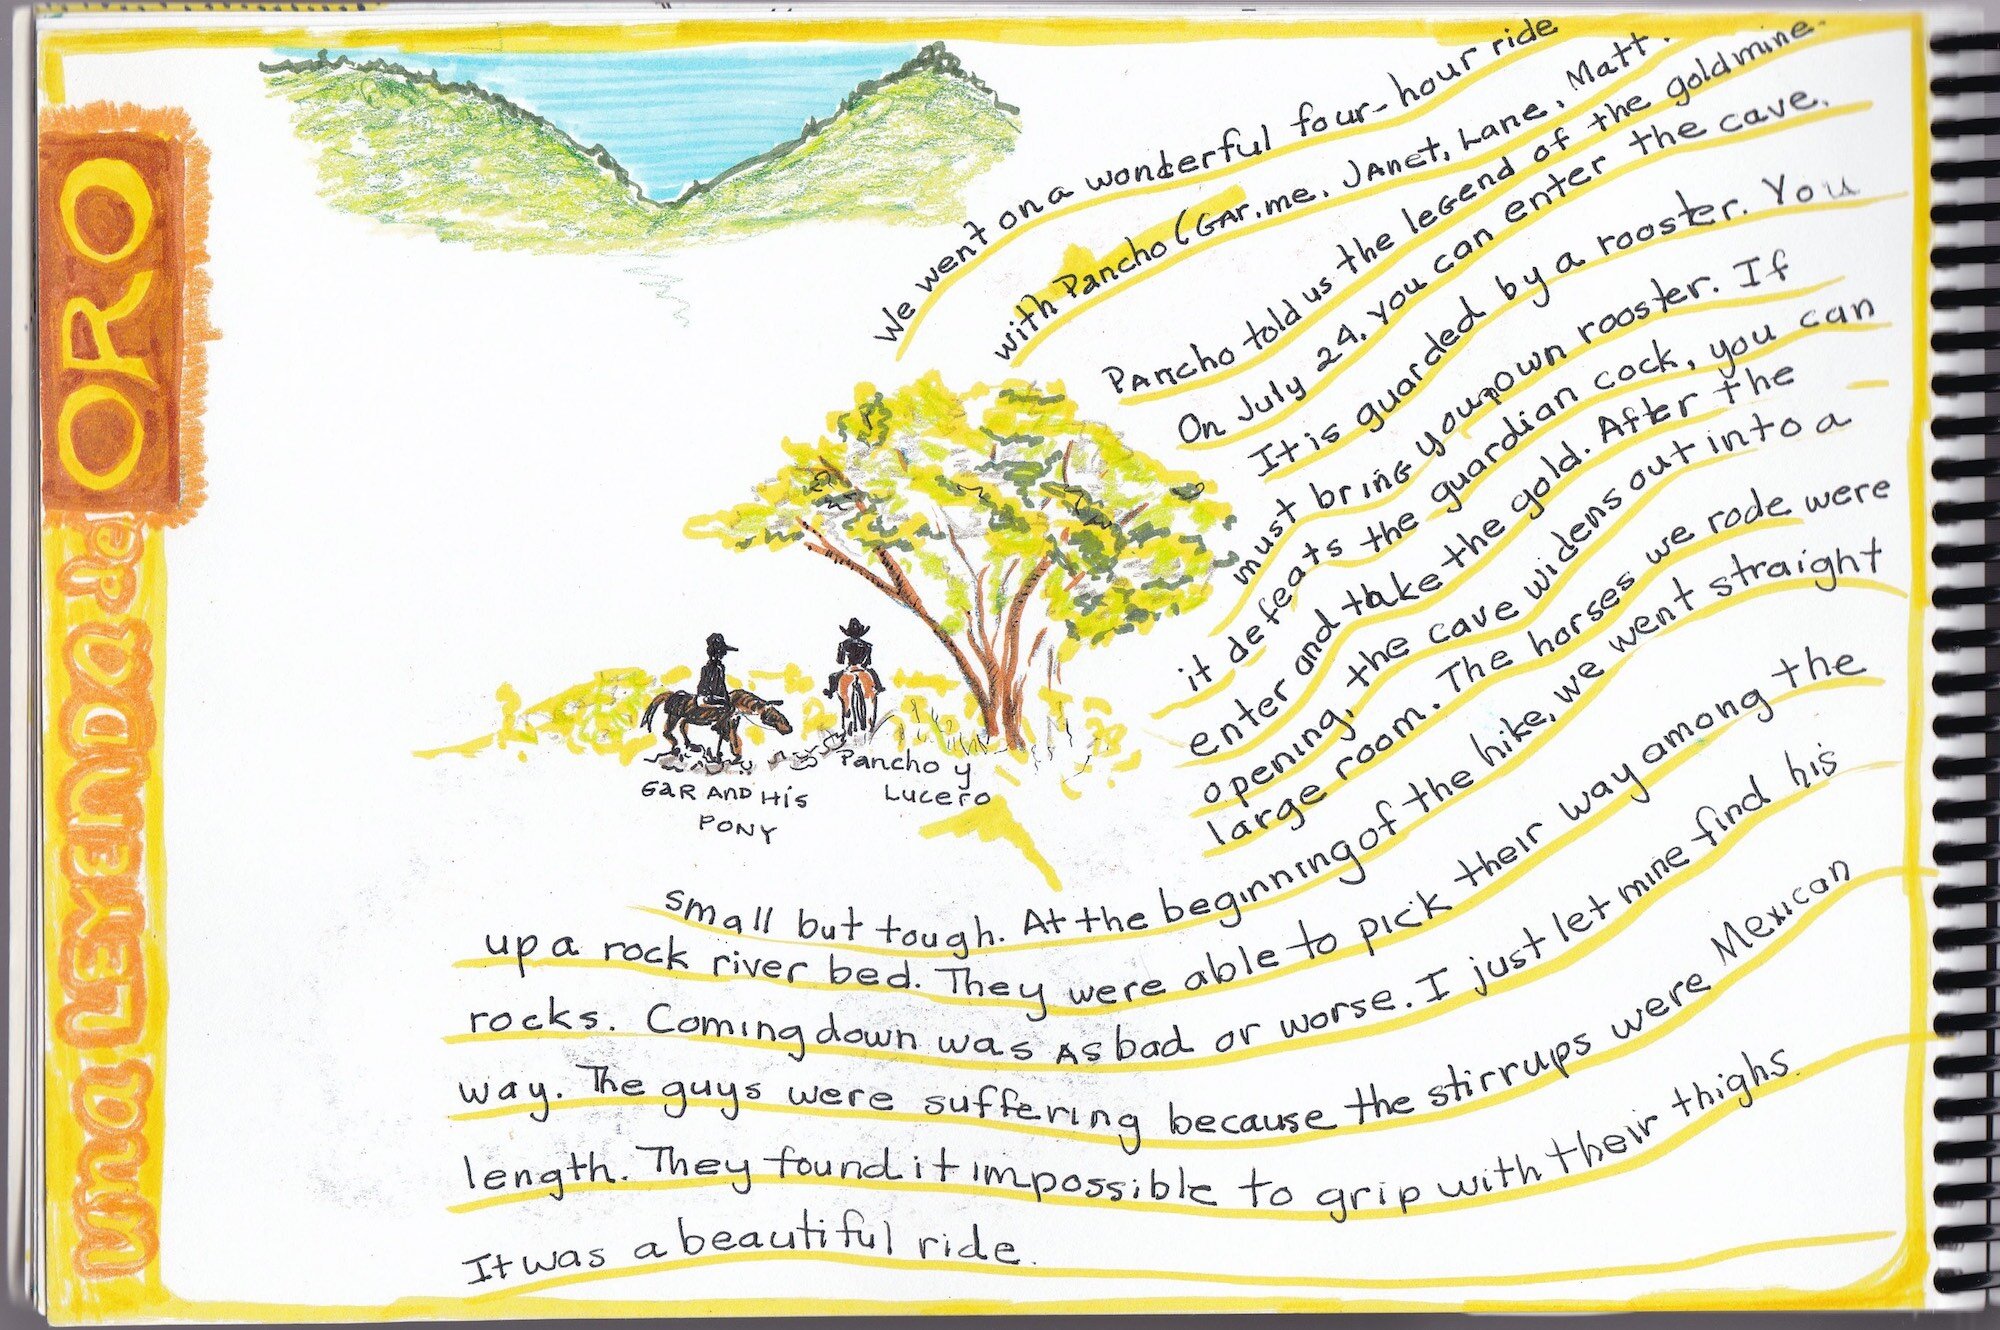 una LEYENDA del ORO
We went on a wonderful four-hour ride
with Pancho (GAr. me. JANet, Lane, Matt.
PAncho told us the leGend of the goldmine.
On July 24, you can enter the cave.
It is guarded by a rooster. You
must brinG your own rooster. If
it defeats the guardian cock, you can
enter and take the gold. After the
opening, the cave widens out into a
large room. The horses we rode were
small but tough. At the beginning of the hike, we went straight
up a rock river bed. They were able to pick their way among the
rocks. Coming down was As bad or worse. I just let mine find his
way. The guys were suffering because the stirrups were Mexican
length. They found it impossible to grip with their thighs.
It was a beautiful ride.
GaR AND His
PONY
Pancho y
Lucero